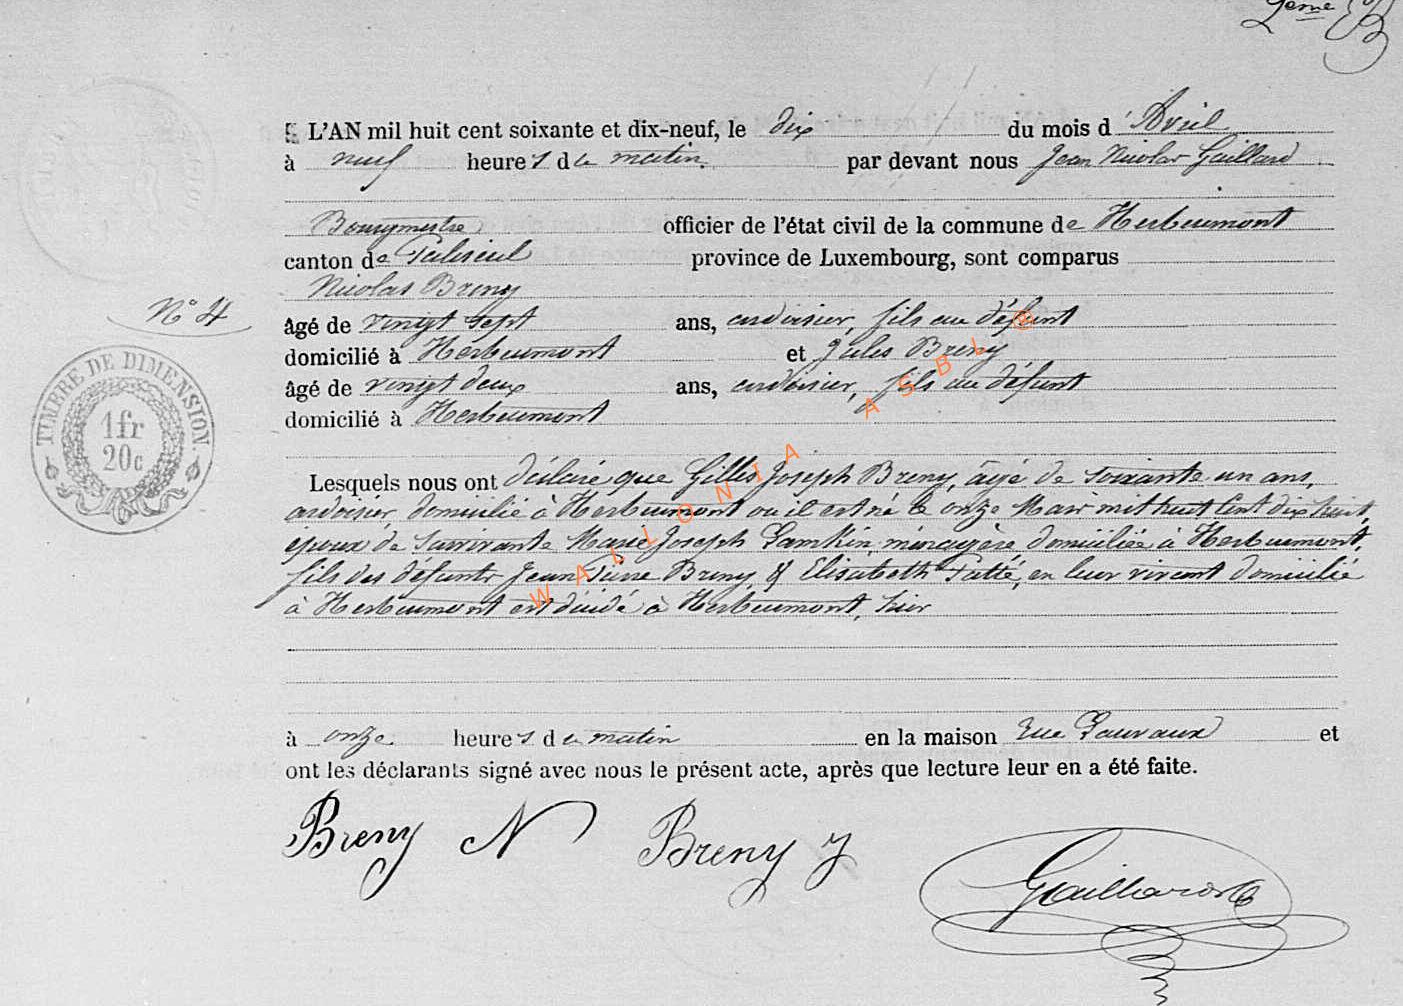 2eme B
L'AN mil huit cent soixante et dix-neuf, le dix du mois d'Avril
à neuf heures du matin par devant nous Jean Nicolas Gaillard
Bourgmestre officier de l'état civil de la commune de Herbeumont
canton de Paliseul province de Luxembourg, sont comparus
Nicolas Breny
N° 4
âgé de vingt sept ans, ardoisier, fils au défunt
domicilié à Herbeumont et Jules Breny
âgé de vingt deux ans, ardoisier, fils au défunt
domicilié à Herbeumont
TIMBRE DE DIMENSION.
1fr
20c
Lesquels nous ont déclaré que Gilles Joseph Breny, âgé de soixante un ans,
ardoisier, domicilié à Herbeumont où il est né le onze Mars mil huit cent dix huit,
époux de survivante Marie Joseph Lamkin, ménagère domiciliée à Herbeumont,
fils des défunts Jean Pierre Breny, & Elisabeth Tatté, en leur vivant domicilié
à Herbeumont est décédé à Herbeumont, hier
à onze heures du matin en la maison rue Lauvaux et
ont les déclarants signé avec nous le présent acte, après que lecture leur en a été faite.
Breny N Breny J
Gaillard
WALLONIA ASBL ®